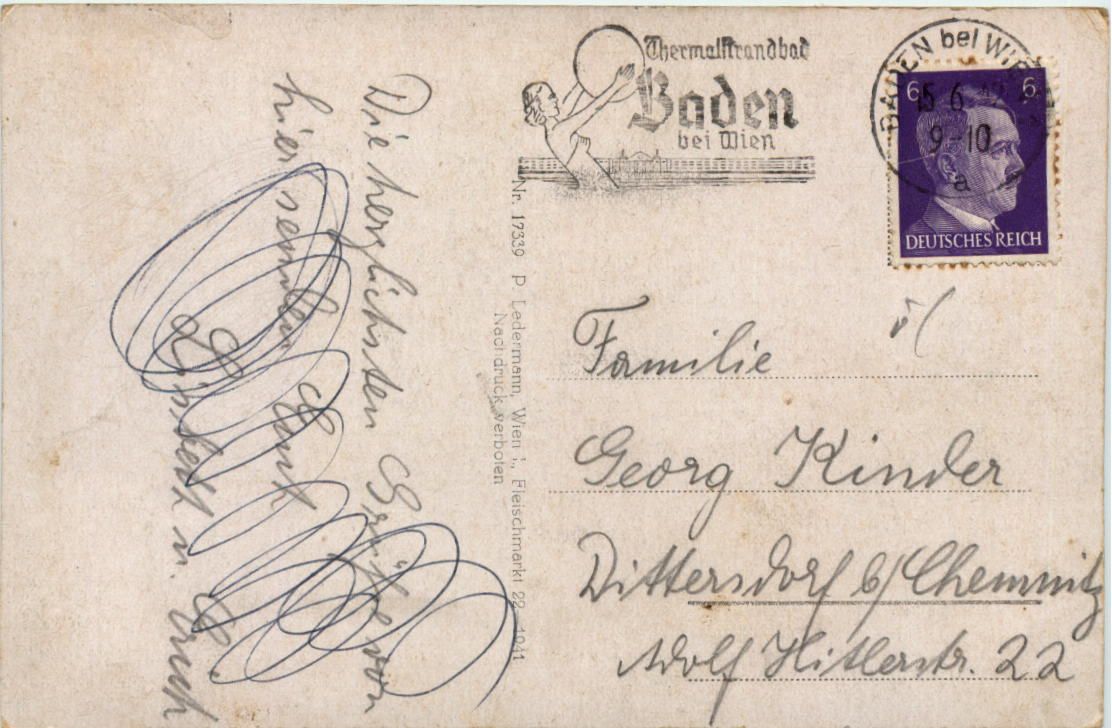 Die herzlichsten Grüße von
hier senden Euch
Lisbeth u. Erich
Nr. 17339 P. Ledermann, Wien I., Fleischmarkt 22 1941
Nachdruck verboten
Thermalstrandbad
Baden
bei Wien
BADEN bei WIEN
15 6 42
9-10
a
6 6
DEUTSCHES REICH
Familie
Georg Kinder
Dittersdorf b/Chemnitz
Adolf Hitlerstr. 22